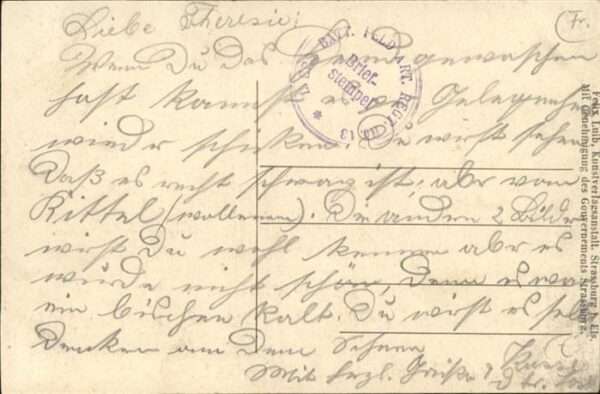 Liebe Theresie!
Wenn Du das gewaschen
hast kannst es Gelegenheit
wieder schicken. wirst sehen
Daß es recht schwarz ist, aber vom
Kittel (wollenen). De andern 2 Bilder
wirst Du wohl kennen aber es
würde nicht schön, denn es war
ein bischen kalt. Du wirst es sehen
Denken an dem Schnee
Mit herzl. Grüße
Fr.
BATT. FELD ART. REGT.
Brief-
stempel
Felix Luib, Kunstverlagsanstalt, Strassburg i. Els.
Mit Genehmigung des Gouvernements Strassburg.